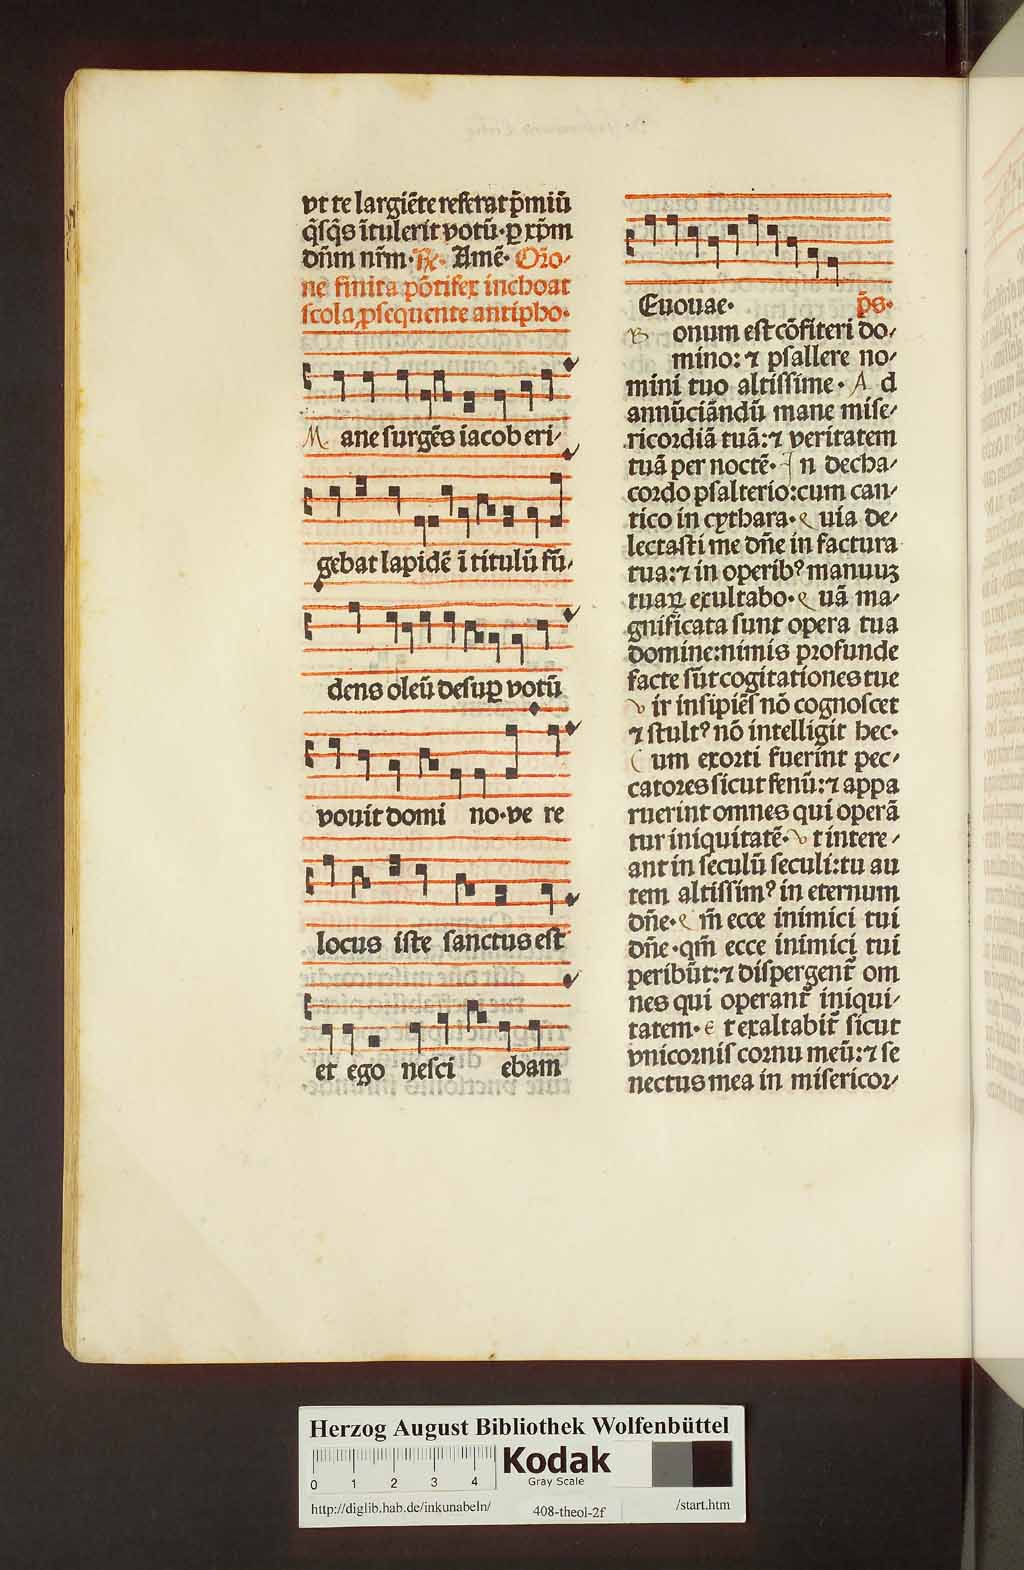 vt te largiēte referat p̄miū
q̄sq̄s ītulerit votū·ꝑ xp̄m
dn̄m nr̄m·℞· Amē· Oꝛ̄o⸗
ne finita pōtifex inchoat
scola ꝓsequente antipho·
M ane surgēs iacob eri⸗
gebat lapidē ī titulū fū⸗
dens oleū desuꝑ votū
vouit domi no·ve re
locus iste sanctus est
et ego nesci ebam
Euouae· p̄s·
B onum est cōfiteri do⸗
mino: ⁊ psallere no⸗
mini tuo altissime· A d
annūciādū mane mise⸗
ricordiā tuā:⁊ veritatem
tuā per noctē· I n decha⸗
coꝛdo psalterio:cum can⸗
tico in cythara· Q uia de⸗
lectasti me dn̄e in factura
tua:⁊ in operibꝰ manuuꝫ
tuaꝝ exultabo· Q uā ma⸗
gnificata sunt opera tua
domine:nimis pꝛofunde
facte sūt cogitationes tue
V ir insipiēs nō cognoscet
⁊ stultꝰ nō intelligit hec·
C um exoꝛti fuerint pec⸗
catoꝛes sicut fenū:⁊ appa
ruerint omnes qui operā
tur iniquitatē· V t intere⸗
ant in seculū seculi:tu au
tem altissimꝰ in eternum
dn̄e· Q m̄ ecce inimici tui
dn̄e·qm̄ ecce inimici tui
peribūt:⁊ dispergent̄ om
nes qui operant̄ iniqui⸗
tatem· E t exaltabit̄ sicut
vnicoꝛnis coꝛnu meū:⁊ se
nectus mea in misericoꝛ⸗
Herzog August Bibliothek Wolfenbüttel
0 1 2 3 4
Kodak
Gray Scale
http://diglib.hab.de/inkunabeln/ 408-theol-2f /start.htm